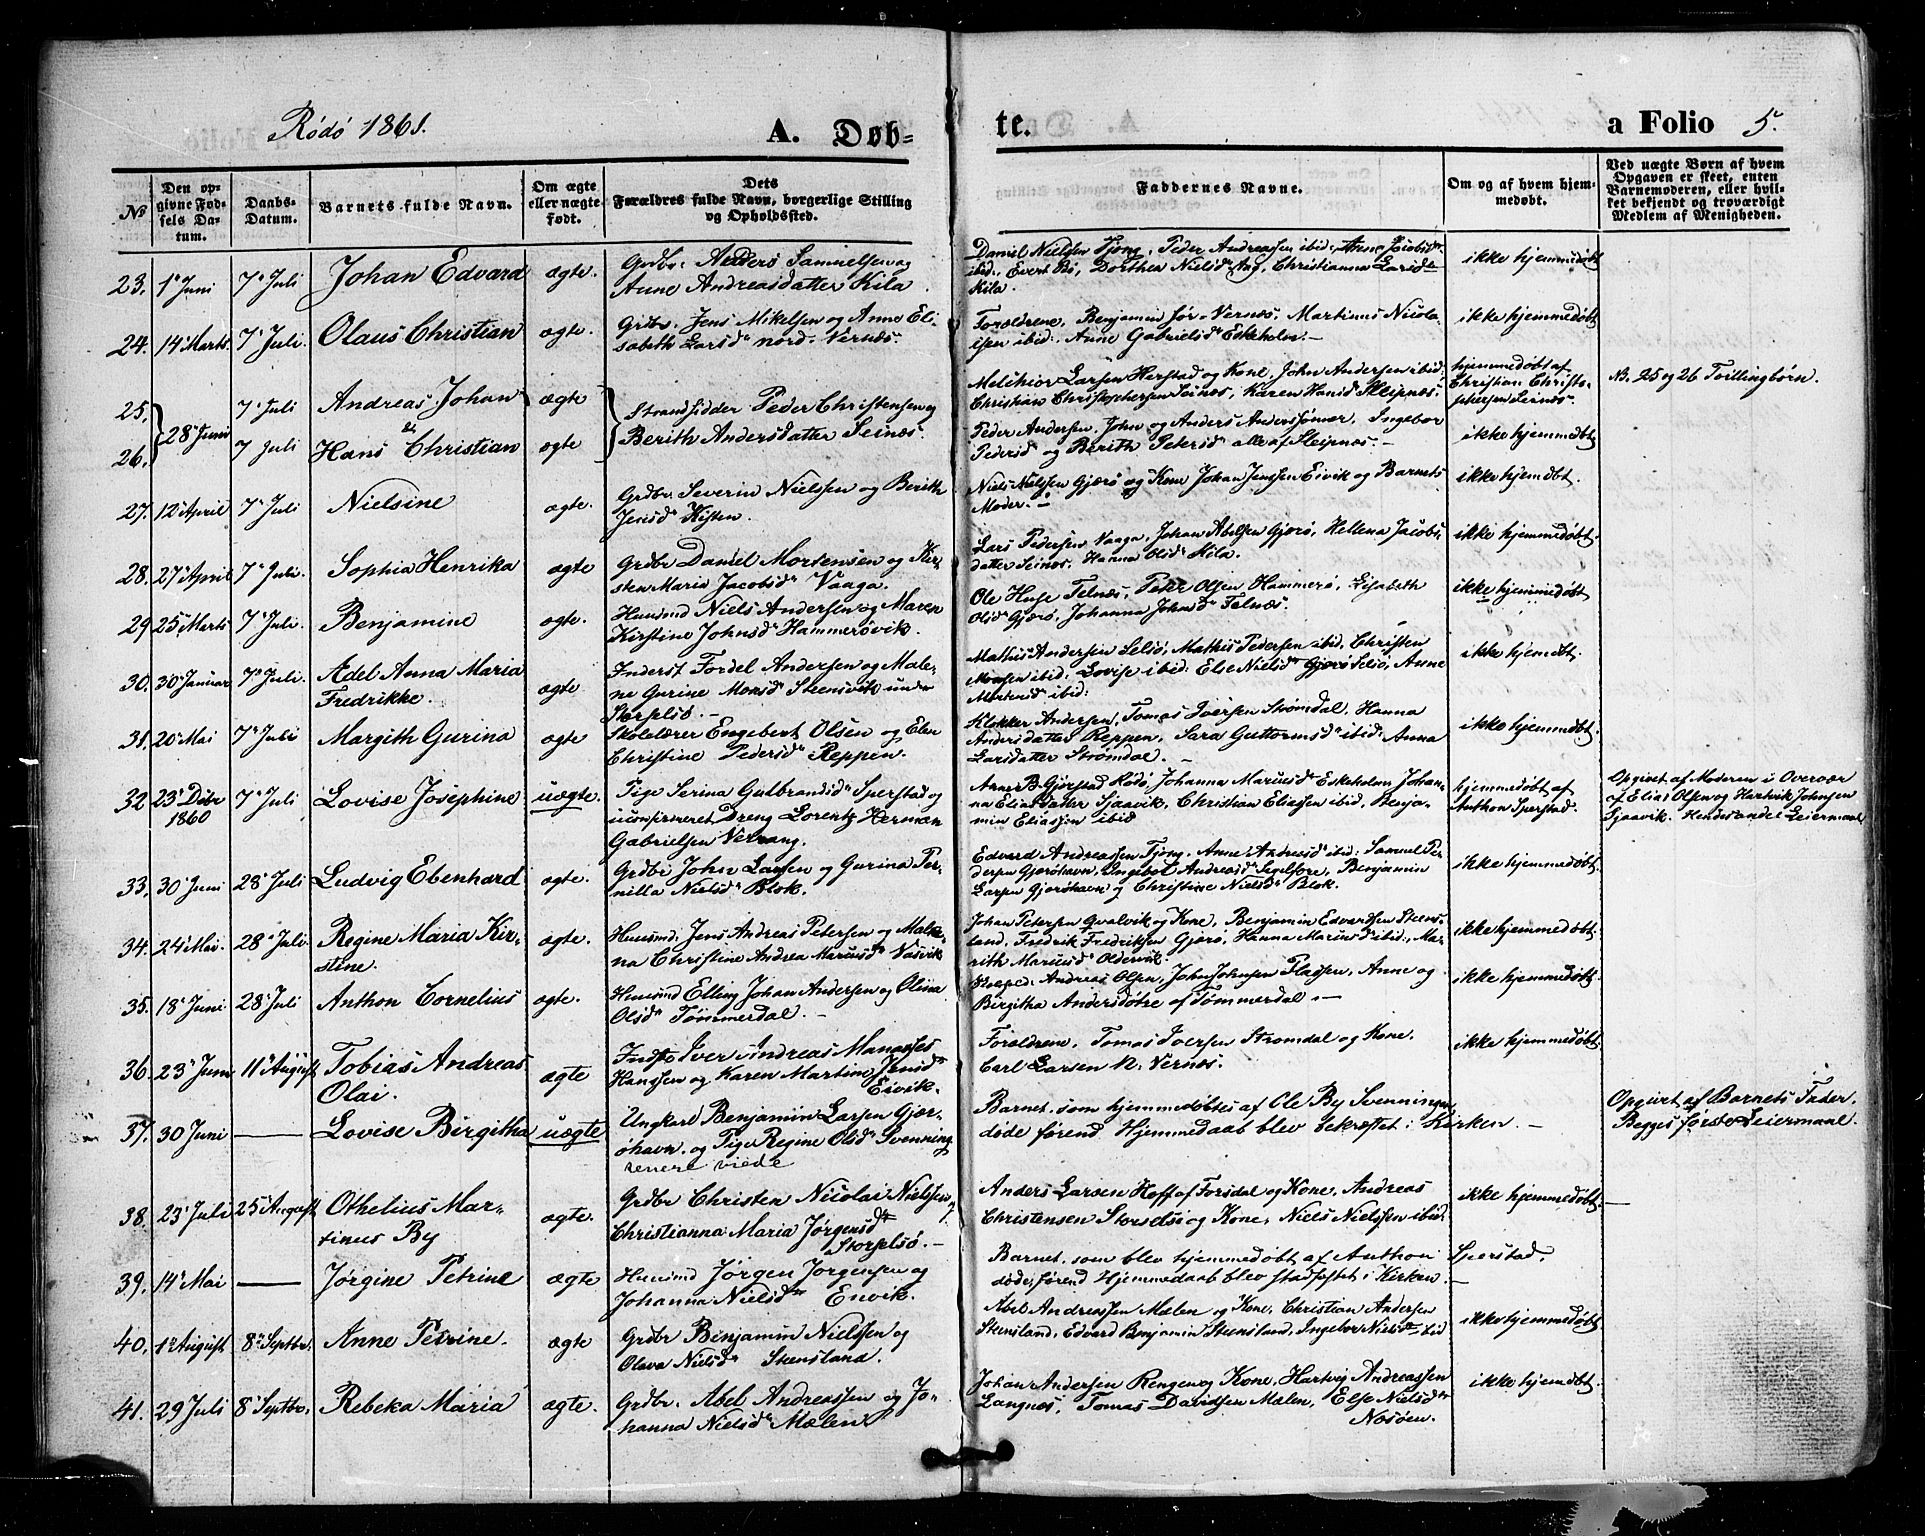 Rødø 1861.
A. Døb-
te.
a Folio 5.
№
Den op-
givne Fød-
sels Da-
tum.
Daabs-
Datum.
Barnets fulde Navn.
Om ægte
eller uægte
født.
Dets
Forældres fulde Navn, borgerlige Stilling
og Opholdssted.
Faddernes Navne.
Om og af hvem hjem-
medøbt.
Ved uægte Børn af hvem
Opgaven er skeet, enten
Barnemoderen, eller hvil-
ket bekjendt og troværdigt
Medlem af Menigheden.
23. 1ste Juni 7de Juli Johan Edvard ægte.
Grdbr. Anders Samuelsen og
Anne Andreasdatter Kila.
Daniel Nielsen Tjong, Peder Andreassen ibid., Anna Jacobsdr
ibid., Evert Bø, Dorthea Nielsdr Aag, Christianna Larsdr
Kila.
ikke hjemmedøbt
24. 14 Marts 7de Juli Olaus Christian ægte.
Grdbr. Jens Mikelsen og Anne Eli-
sabeth Larsdr nord-Vernæs.
Forældrene, Benjamin Sør-Vernæs, Martinus Nicola-
isen ibid., Anne Gabrielsdr Eskeholm.
ikke hjemmedøbt
25. 28de Juni 7de Juli Andreas Johan ægte
Strandsidder Peder Christensen og
Berith Andersdatter Seinæs.
Melchior Larsen Herstad og Kone, John Andersen ibid.
Christian Christophersen Seinæs, Karen Hansdr Sleipnæs.
hjemmedøbt af
Christian Christo-
phersen Seinæs.
№ 25 og 26 Tvillingbørn.
26. 7 Juli Hans Christian ægte
Peder Andersen, John og Anders Anderssønner, Ingebor
Pedersd og Berith Petersd alle af Sleipnæs.
ikke hjemmedøbt
27. 12 April 7de Juli Nielsine ægte.
Grdbr. Severin Nielsen og Berith
Jensdr Kisten.
Niels Nielsen Gjærø og Kone Johan Jenssen Eivik og Barnets
Moder.
ikke hjemdøbt.
28. 27de April 7de Juli. Sophia Henrika ægte
Grdbr Daniel Mortensen og Kir-
sten Maria Jacobsdr Vaaga.
Lars Pedersen Vaaga, Johan Abelsen Gjærø, Hellena Jacobs
datter Seinæs, Hanna Olsdr Kila.
ikke hjemmedøbt.
29 25 Marts 7de Juli. Benjamine ægte.
Huusmd Niels Andersen og Maren
Kirstine Johnsdr Hammerøvik.
Ole Huse Telnæs, Peter Olsen Hammerø, Elisabeth
Olsdr Gjærø, Johanna Johnsdr Telnæs.
ikke hjemmedøbt
30. 30 Januar 7de Juli. Adel Anna Maria
Fredrikke. ægte
Inderst Fordel Andersen og Male-
ne Gurine Monsdr Steensvik under
Storselsø.
Mathis Andersen Selsø, Mathis Pedersen ibid, Christen
Monsen ibid, Lovise ibid: Else Nielsdr Gjærø Selsø, Anne
Mortensdr ibid:
ikke hjemdøbt.
31. 20de Mai 7de Juli Margith Gurina ægte
Skolelærer Engebert Olsen og Elen
Christine Pedersdr Reppen.
Klokker Andersen, Tomas Iversen Strømdal, Hanna
Andersdatter Reppen, Sara Guttormsdr ibid. Anna
Larsdatter Strømdal.
ikke hjemmedøbt
32 23de Debr
1860 7de Juli Lovise Josephine uægte.
Pige Serina Gulbrandsdr Sperstad og
uconfirmeret Dreng Lorentz Herman
Gabrielsen Værang.
Anne B. Gjørstad Rødø, Johanna Mariusdr Eskeholm, Johan-
na Eliasdatter Sjaavik, Christian Eliassen ibid, Benja-
min Eliassen ibid
hjemmedøbt af
Anthon Sperstad.
Opgivet af Moderen i Overvær
af Elias Olsen og Hartvik Johnsen
Sjaavik. Hendes andet Leiermaal
33. 30 Juni 28de Juli Ludvig Ebenhard ægte.
Grdbr John Larsen og Gurina Per-
nilla Nielsdr Blok.
Edvard Andreassen Tjong, Anne Andreasdr ibid: Samuel Pe-
dersen Gjærøhavn, Ingebor Andreasdr Segelfore, Benjamin
Larsen Gjærøhavn og Christine Nielsdr Blok.
ikke hjemmedøbt
34. 24de Mai 28de Juli Regine Maria Kir-
stine. ægte.
Huusmd. Jens Andreas Petersen og Male-
na Christine Andrea Mariusdr Vasvik
Johan Petersen Qvalvik og Kone, Benjamin Edvardsen Steens-
land, Fredrik Fredriksen Gjærø, Hanna Mariusdr ibid., Ma-
rith Mariusdr Oldervik.
ikke hjemmedøbt
35. 18de Juni 28de Juli Anthon Cornelius ægte.
Huusmd Elling Johan Andersen og Olina
Olsdr Tømmerdal.
Andreas Olsen, John Johnsen Flassen, Anne og
Birgitha Andersdøtre af Tømmerdal.
ikke hjemmedøbt
36. 23de Juni 11te August Tobias Andreas
Olai. ægte
Indst Iver Andreas Manasses
Hanssen og Karen Martina Jensdr
Eivik.
Forældrene, Tomas Iversen Strømdal og Kone.
Carl Larsen N. Vernæs.
ikke hjemmedøbt
37. 30 Juni — Lovise Birgitha uægte
Ungkarl Benjamin Larsen Gjær-
øhavn og Pige Regine Olsdr Svenning
senere viede
Barnet, som hjemmedøbtes af Ole By Svenningen
døde førend Hjemmedaab blev bekræftet i Kirken.
Opgivet af Barnets Fader.
Begges første Leiermaal.
38. 23 Juli 25de August Othelius Mar-
tinus By ægte.
Grdbr Christen Nicolai Nielssen og
Christianna Maria Jørgensdr
Storselsø.
Anders Larsen Hoff af Forsdal og Kone, Andreas
Christensen Storselsø og Kone, Niels Nielssen ibid.
ikke hjemmedøbt
39. 14de Mai — Jørgine Petrine ægte
Huusmd Jørgen Jørgensen og
Johanna Nielsdr Envik.
Barnet, som blev hjemmedøbt af Anthon Sperstad,
døde, førend Hjemmedaab blev stadfæstet i Kirken.
40. 1ste August 8de Septbr. Anne Petrine. ægte
Grdbr Benjamin Nielssen og
Olava Nielsdr Steensland.
Abel Andreassen Mælen og Kone, Christian Andersen
Steensland, Edvard Benjamin Steensland, Ingebor Nielsdr ibid
ikke hjemmedøbt
41. 29 Juli 8de Septbr. Rebeka Maria ægte.
Grdbr. Abel Andreassen og Jo-
hanna Nielsdr Mælen
Johan Andersen Rengen og Kone, Hartvig Andreassen
Langnæs, Tomas Davidsen Mælen, Else Nielsdr
Nosøen.
ikke hjemdøbt.